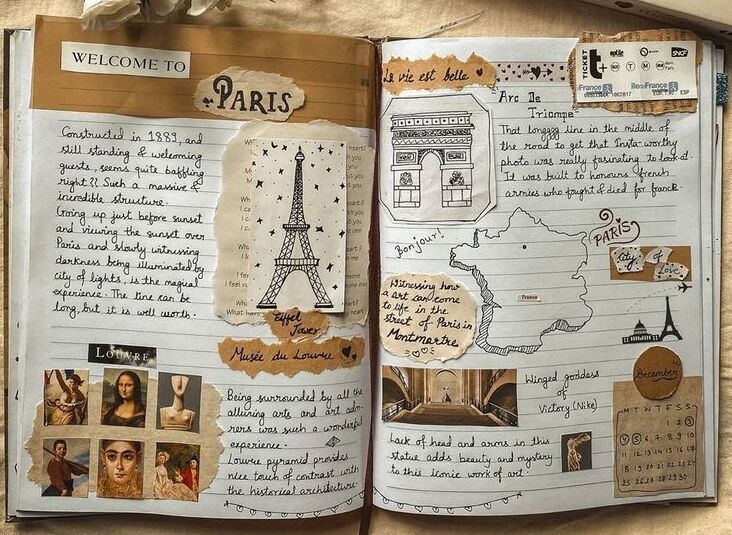 WELCOME TO
PARIS
Constructed in 1889, and
still standing & welcoming
guests, seems quite baffling
right?! Such a massive &
incredible structure.
Going up just before sunset
and viewing the sunset over
Paris and slowly witnessing
darkness being illuminated by
city of lights, is the magical
experience. The line can be
long, but it is well worth.
Eiffel
Tower
Musée du Louvre
LOUVRE
Being surrounded by all the
alluring arts and art adm-
irers was such a wonderful
experience.
Louvre pyramid provides
nice touch of contrast with
the historical architecture.
La vie est belle
TICKET
t+
optile
RATP
SNCF
Arc De
Triompe
That longgg line in the middle of
the road to get that Insta-worthy
photo was really fasinating to look at.
It was built to honours french
armies who fought & died for france.
Bonjour!
PARIS
City of
Love
France
Witnessing how
a art can come
to life in the
street of Paris in
Montmartre
Winged goddess
of
Victory (Nike)
Lack of head and arms in this
statue adds beauty and mystery
to this iconic work of art.
December
M T W T F S S
1 2 3
4 5 6 7 8 9 10
11 12 13 14 15 16 17
18 19 20 21 22 23 24
25 26 27 28 29 30